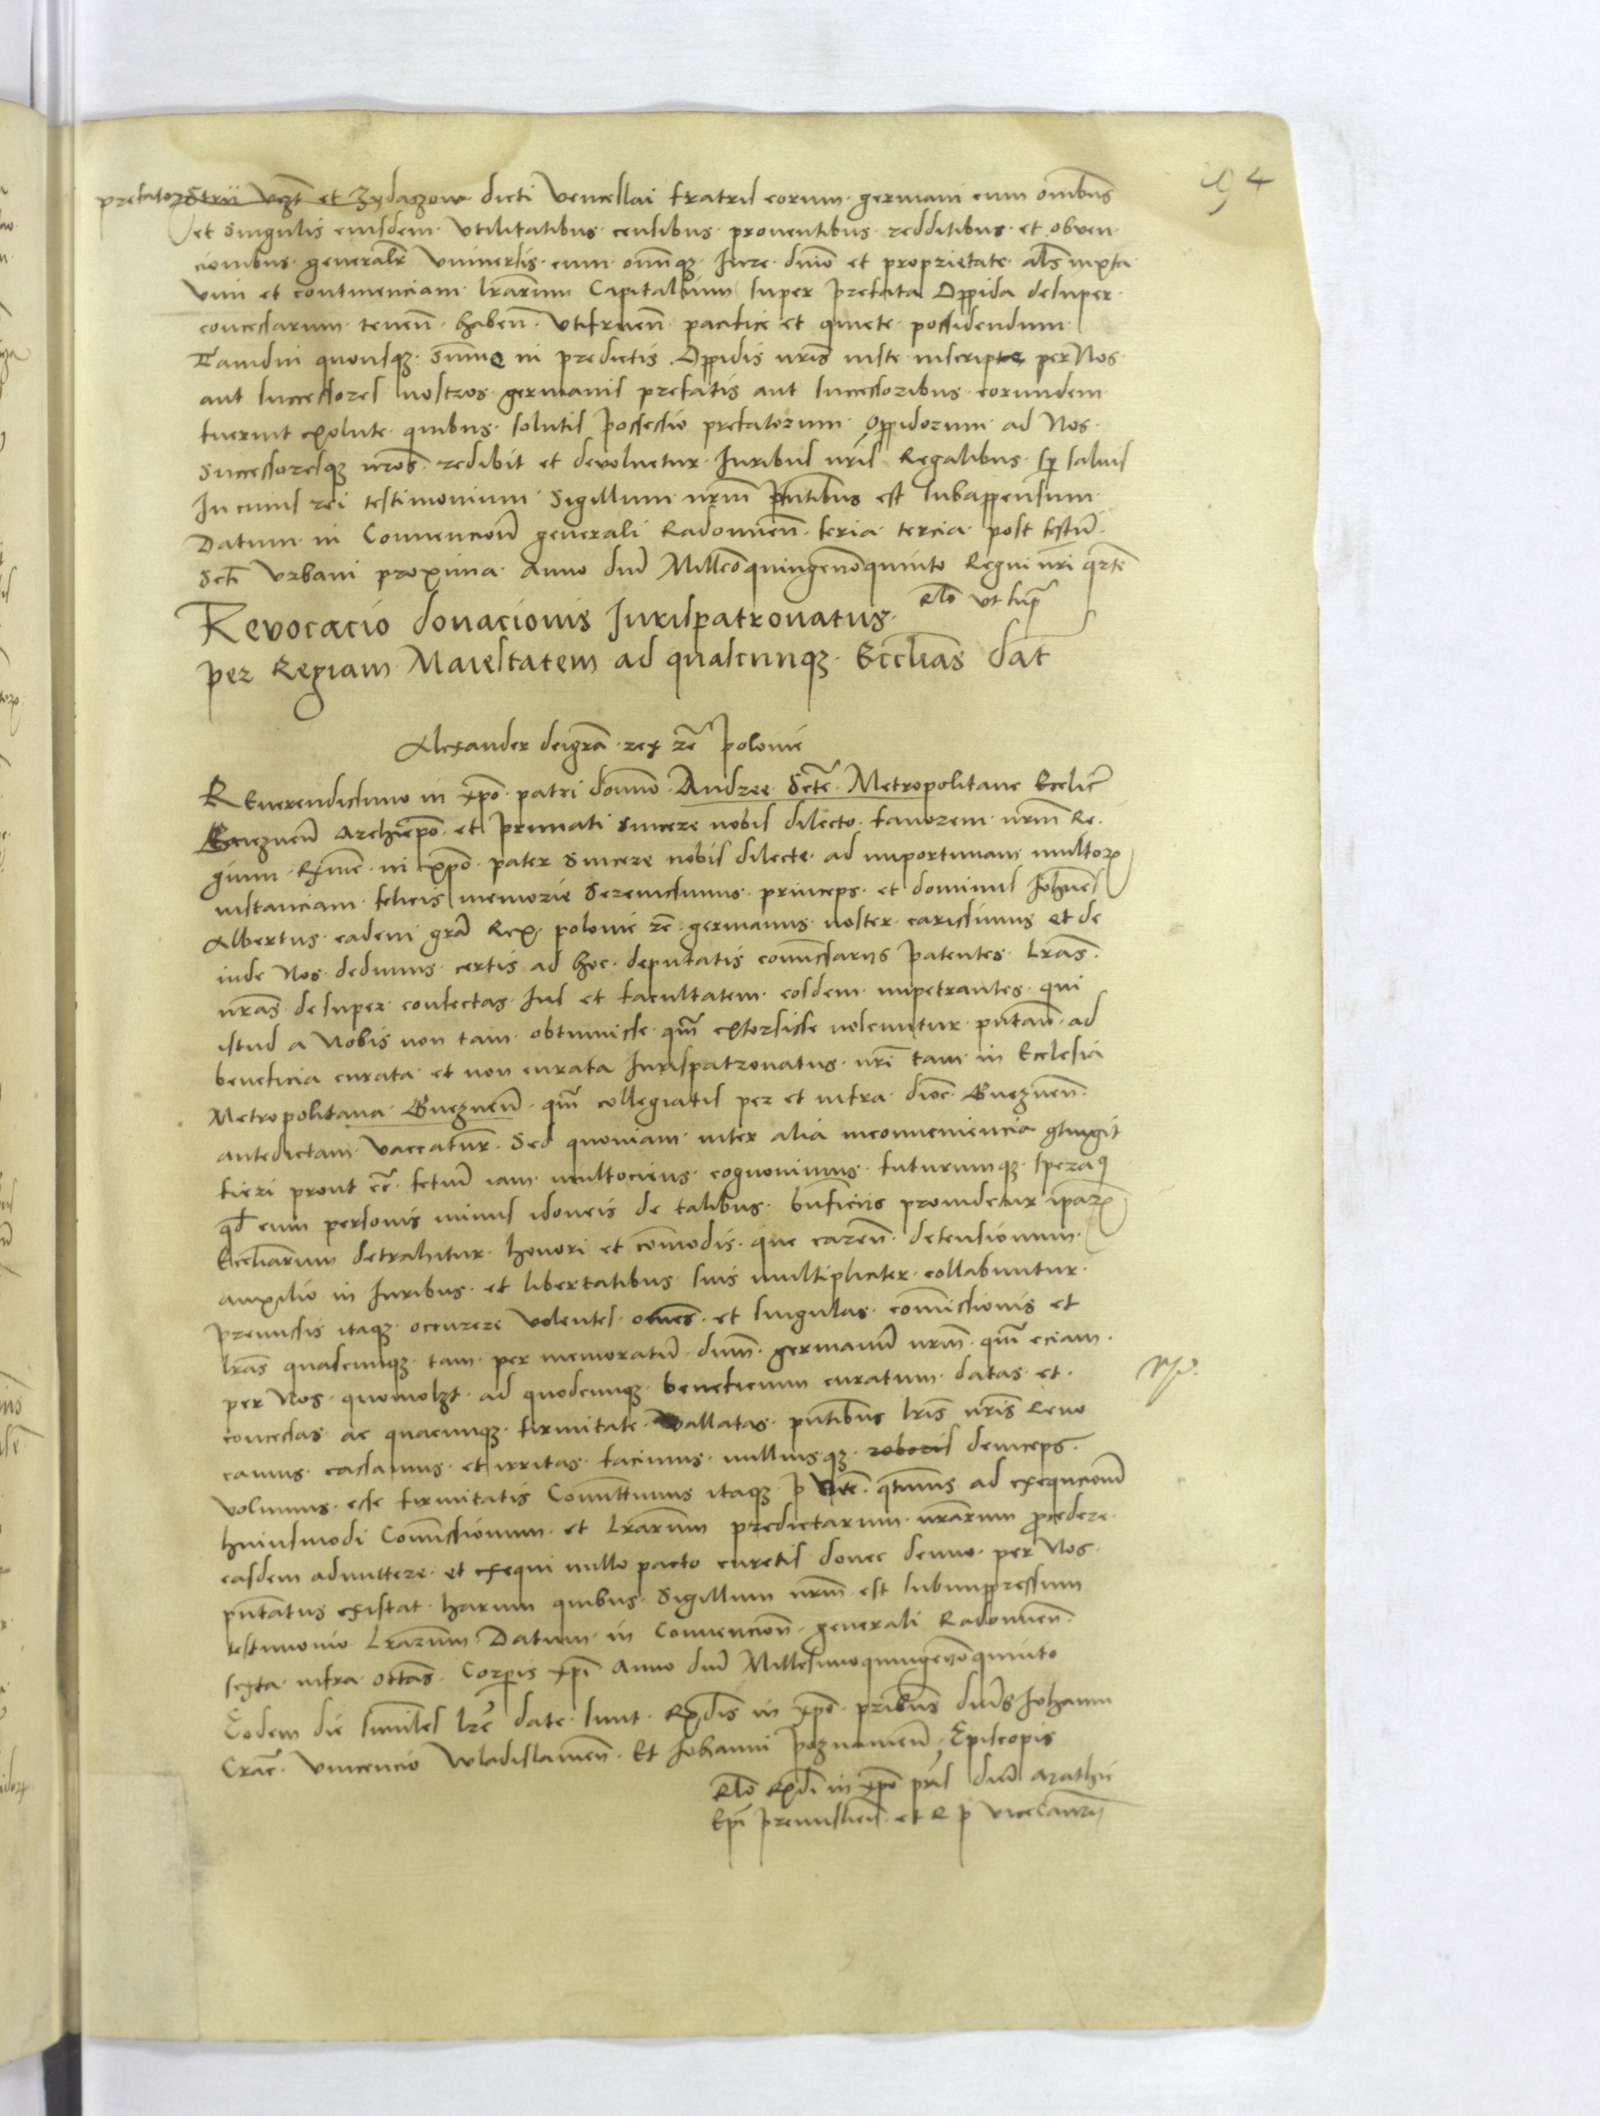 94
prefator Strii vczt et Zydaczow dicti Venceslai fratris eorum germani cum omibus
et singulis eiusdem utilitatibus censibus proventibus redditibus et obven
cionibus generalr universis cum omniq iure dnio et proprietate als iuxta
vim et continenciam lrarum Capitalium super prefata Oppida desuper
concessarum tenen haben utifruen pacifice et quiete possidendum
Tamdiu quousq sume in predictis Oppidis nris iuste inscripte per Nos
aut successores nostros germanis prefatis aut successoribus eorundem
fuerint exolute quibus solutis possessio prefatorum Oppidorum ad Nos
Successoresq nros redibit et devolvetur Iuribus nris Regalibus sp salvis
In cuius rei testimonium Sigillum nrm pntibus est subappensum
Datum in Convencione generali Radomien feria tercia post festum
Scti Urbani proxima anno dni Millcoquingenoquinto Regni nri qrto
Rlo ut supra
Revocacio donacionis Iurispatronatus
per Regiam Maiestatem ad quascunq Ecclias dat
Alexander dei gra rex zc polonie
Reverendissimo in xpo patri domno Andree Scte Metropolitane Ecclie
Gneznen Archiepo et primati sincere nobis dilecto favorem nrm Re
gium Rxme in xpo pater sincere nobis dilecte ad importunam multor
instanciam felicis memorie Serenissimus princeps et dominus Iohnes
Albertus eadem gra Rex polonie zc germanus noster carissimus et de
inde Nos dedimus certis ad hoc deputatis comissariis patentes lras
nras desuper confectas ius et facultatem eosdem impetrantes qui
istud a Nobis non tam obtinuisse qm extorsisse volentur pntan ad
beneficia curata et non curata Iurispatronatus nri tam in Ecclesia
Metropolitana Gneznen qm collegiatis per et infra dioc Gneznen
antedictam vaccatur Sed quoniam inter alia inconveniencia gtingit
fieri prout ec fetum iam multociens cognovimus futurumq speraq
qd cum personis minus idoneis de talibus bnficiis providetur ipar
Eccliarum detrahitur honori et comodis que caren defensionum
auxilio in Iuribus et libertatibus suis multipliciter collabuntur
premissis itaq occurere volentes omnes et singulas comissionis et
lras quascunq tam per memoratum dnm germanum nrm qm eciam
per Nos quomolzt ad quodcunq beneficium curatum datas et
concessas ac quacunq firmitate vallatas pntibus lris nris Revo
camus cassamus et irritas facimus nulliusq roboris deinceps
volumus esse firmitatis Comittimus itaq p vre qtenus ad execucionem
huiusmodi Comissionum et lrarum predictarum nrarum procedere
easdem admittere et exequi nullo pacto curetis donec denuo per Nos
pntatus existat harum quibus Sigillum nrm est subimpressum
testimonio lrarum Datum in Convencion generali Radomien
sexta infra ottas Corporis xpi anno dni Millesimoquingenoquinto
Eodem die similes lre date sunt Rxdis in xpo pribus dnis Iohanni
Crac Vincencio Wladislavien Et Iohanni poznanien Episcopis
Rlo Rxdi in xpo pris dni Mathii
Epi premislien et R p vicecancrii